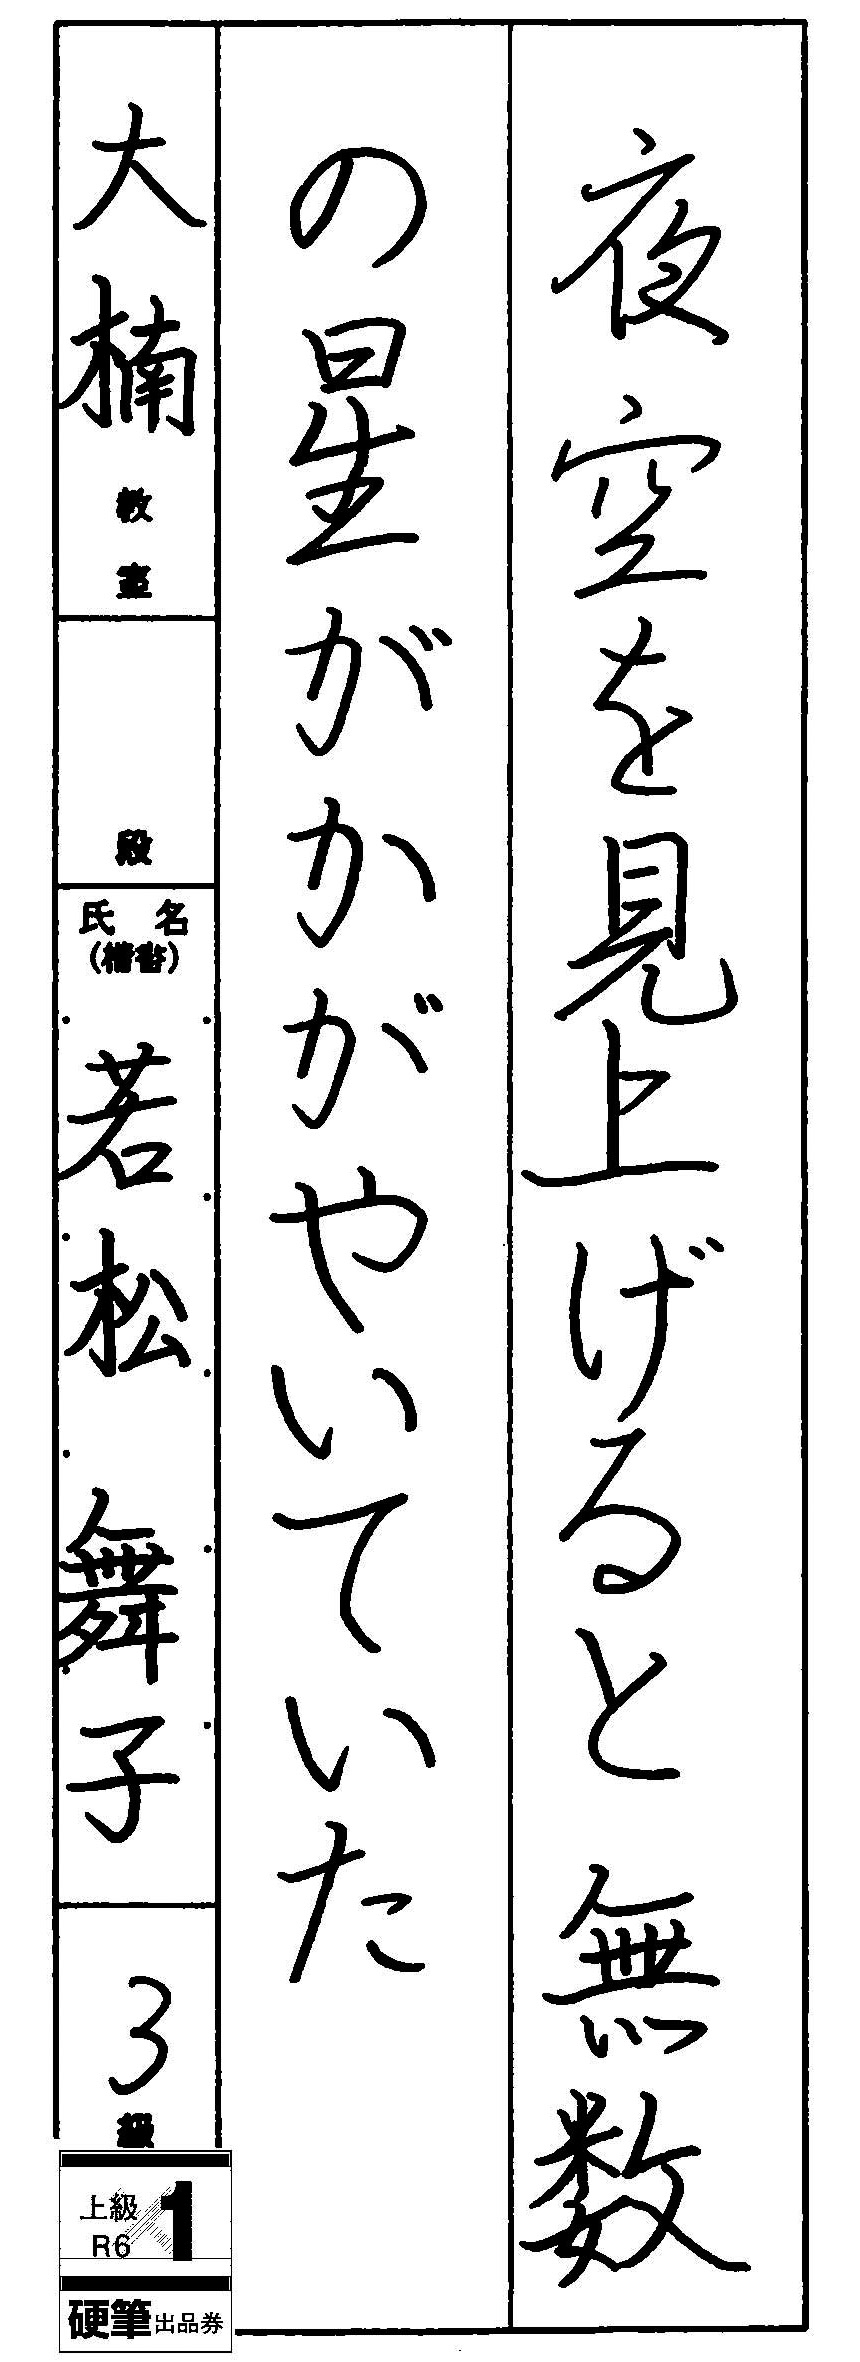 夜空を見上げると無数
の星がかがやいていた
大楠教室
段
氏名
(楷書)
若松 舞子
3級
上級 1
R6
硬筆出品券